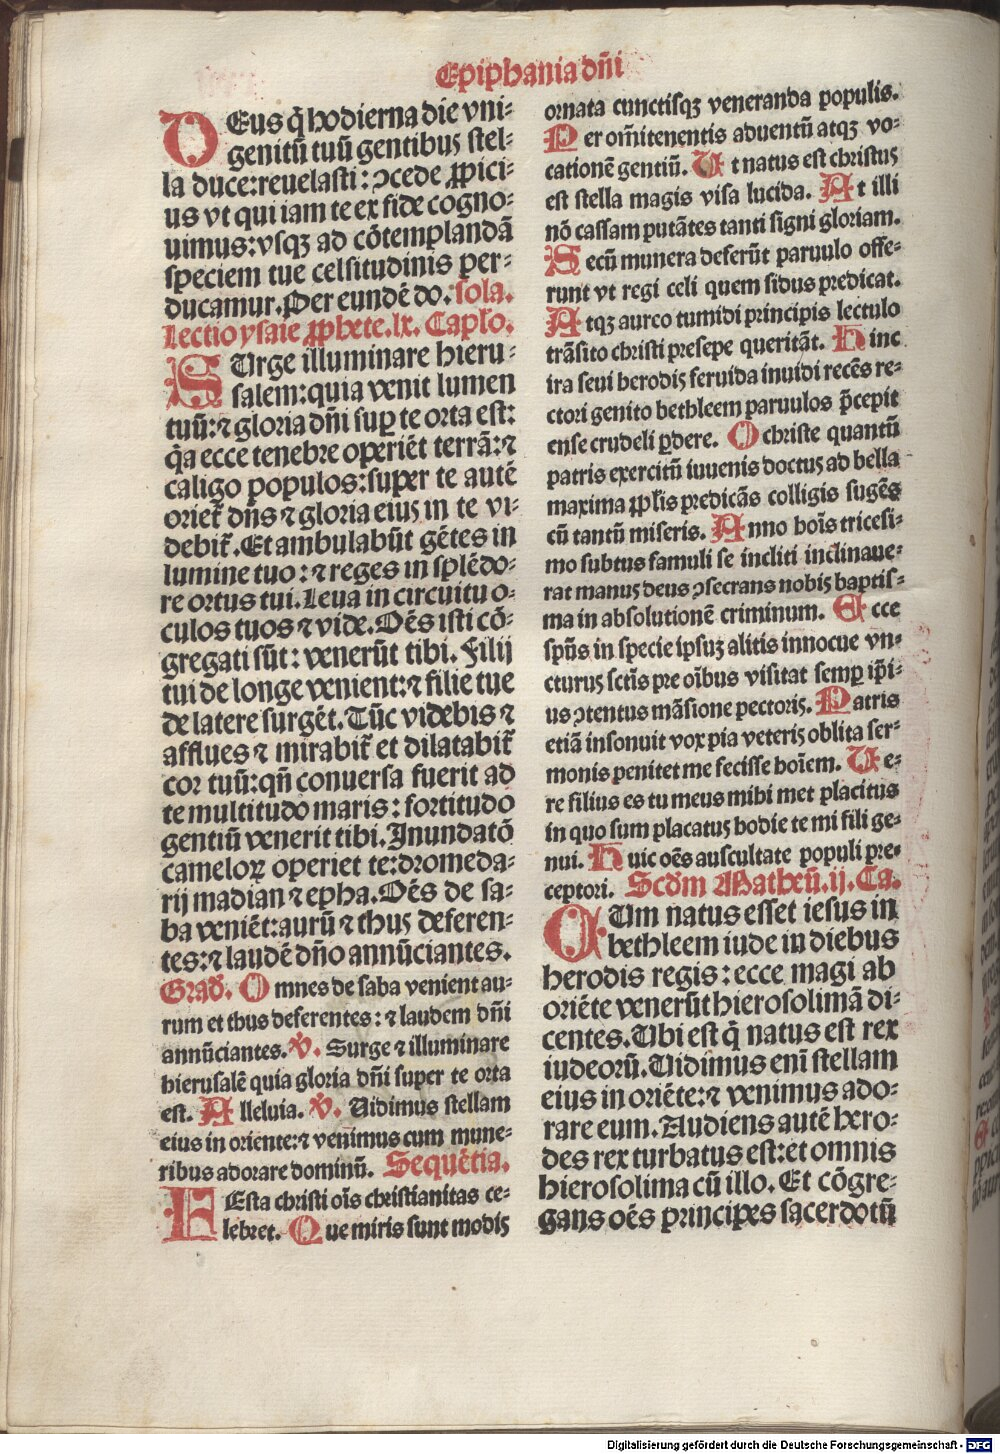 Epiphania dñi
DEus q̃ hodierna die vni-
genitũ tuũ gentibus stel-
la duce:reuelasti: ꝯcede ꝓpici-
us vt qui iam te ex fide cogno-
uimus:vsqꝫ ad cõtemplandã
speciem tue celsitudinis per-
ducamur.Per eundẽ do. sola.
Lectio ysaie ꝓphete.lx. Capło.
SUrge illuminare hieru-
salem:quia venit lumen
tuũ:⁊ gloria dñi suꝑ te orta est:
q̃a ecce tenebre operiẽt terrã:⁊
caligo populos:super te autẽ
oriet᷑ dñs ⁊ gloria eius in te vi-
debit᷑.Et ambulabũt gẽtes in
lumine tuo:⁊ reges in splẽdo-
re ortus tui.Leua in circuitu o-
culos tuos ⁊ vide.Oẽs isti cõ-
gregati sũt: venerũt tibi. Filij
tui de longe venient:⁊ filie tue
de latere surgẽt.Tũc videbis ⁊
afflues ⁊ mirabit᷑ et dilatabit᷑
cor tuũ:qñ conuersa fuerit ad
te multitudo maris: fortitudo
gentiũ venerit tibi.Inundatõ
cameloꝝ operiet te:dromeda-
rij madian ⁊ epha.Oẽs de sa-
ba veniẽt:aurũ ⁊ thus deferen-
tes:⁊ laudẽ dño annũciantes.
Grad᷑. Omnes de saba venient au-
rum et thus deferentes: ⁊ laudem dñi
annũciantes. ℣. Surge ⁊ illuminare
hierusalẽ quia gloria dñi super te orta
est. Alleluia. ℣. Uidimus stellam
eius in oriente:⁊ venimus cum mune-
ribus adorare dominũ. Sequẽtia.
FEsta christi oĩs christianitas ce-
lebret. Que miris sunt modis
ornata cunctisqꝫ veneranda populis.
Per om̃itenentis aduentũ atqꝫ vo-
cationẽ gentiũ. Ut natus est christus
est stella magis visa lucida. At illi
nõ cassam putãtes tanti signi gloriam.
Secũ munera deferũt paruulo offe-
runt vt regi celi quem sidus predicat.
Atqꝫ aureo tumidi principis lectulo
trãsito christi presepe queritãt. Hinc
ira seui herodis feruida inuidi recẽs re-
ctori genito bethleem paruulos p̃cepit
ense crudeli ꝑdere. O christe quantũ
patris exercitũ iuuenis doctus ad bella
maxima ꝓplis predicãs colligis sugẽs
cũ tantũ miseris. Anno hoĩs tricesi-
mo subtus famuli se incliti inclinaue-
rat manus deus ꝯsecrans nobis baptis-
ma in absolutionẽ criminum. Ecce
spũs in specie ipsuꝫ alitis innocue vn-
cturus sctũs pre oĩbus visitat semꝑ ip̃i-
us ꝯtentus mãsione pectoris. Patris
etiã insonuit vox pia veteris oblita ser-
monis penitet me fecisse hoĩem. Ue-
re filius es tu meus mihi met placitus
in quo sum placatus hodie te mi fili ge-
nui. Huic oẽs auscultate populi pre-
ceptori. Scdm Matheũ.ij.Ca.
CUm natus esset iesus in
bethleem iude in diebus
herodis regis: ecce magi ab
oriẽte venerũt hierosolimã di-
centes.Ubi est q̃ natus est rex
iudeorũ.Uidimus enĩ stellam
eius in oriẽte:⁊ venimus ado-
rare eum.Audiens autẽ hero-
des rex turbatus est:et omnis
hierosolima cũ illo. Et cõgre-
gans oẽs principes sacerdotũ
Digitalisierung gefördert durch die Deutsche Forschungsgemeinschaft - DFG